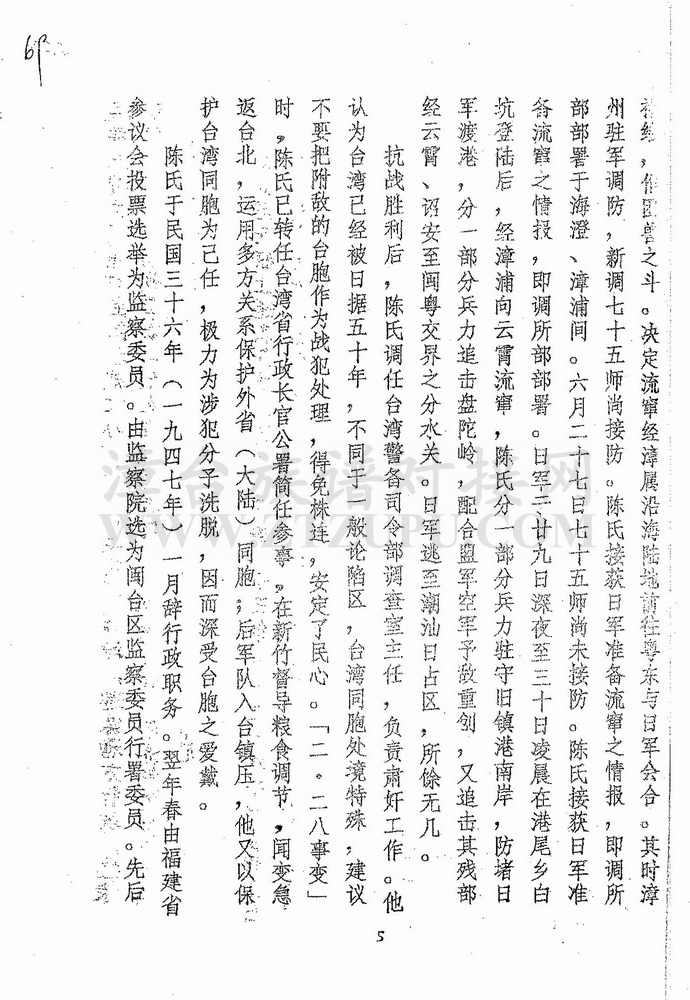 69
犹困兽之斗。决定流窜经漳属沿海陆地前往粤东与日军会合。其时漳
州驻军调防,新调七十五师尚接防。陈氏接获日军准备流窜之情报,即调所
部部署于海澄、漳浦间。六月二十七日七十五师尚未接防。陈氏接获日军准
备流窜之情报,即调所部部署。日军于廿九日深夜至三十日凌晨在港尾乡白
坑登陆后,经漳浦向云霄流窜,陈氏分一部分兵力驻守旧镇港南岸,防堵日
军渡港,分一部分兵力追击盘陀岭,配合盟军空军予敌重创,又追击其残部
经云霄、诏安至闽粤交界之分水关。日军逃至潮汕日占区,所馀无几。
抗战胜利后,陈氏调任台湾警备司令部调查室主任,负责肃奸工作。他
认为台湾已经被日据五十年,不同于一般论陷区,台湾同胞处境特殊,建议
不要把附敌的台胞作为战犯处理,得免株连,安定了民心。「二·二八事变」
时,陈氏已转任台湾省行政长官公署简任参事,在新竹督导粮食调节,闻变急
返台北,运用多方关系保护外省(大陆)同胞;后军队入台镇压,他又以保
护台湾同胞为己任,极力为涉犯分予洗脱,因而深受台胞之爱戴。
陈氏于民国三十六年(一九四七年)一月辞行政职务。翌年春由福建省
参议会投票选举为监察委员。由监察院选为闽台区监察委员行署委员。先后
5
漳台族谱对接网
WWW.ZTZUPU.COM